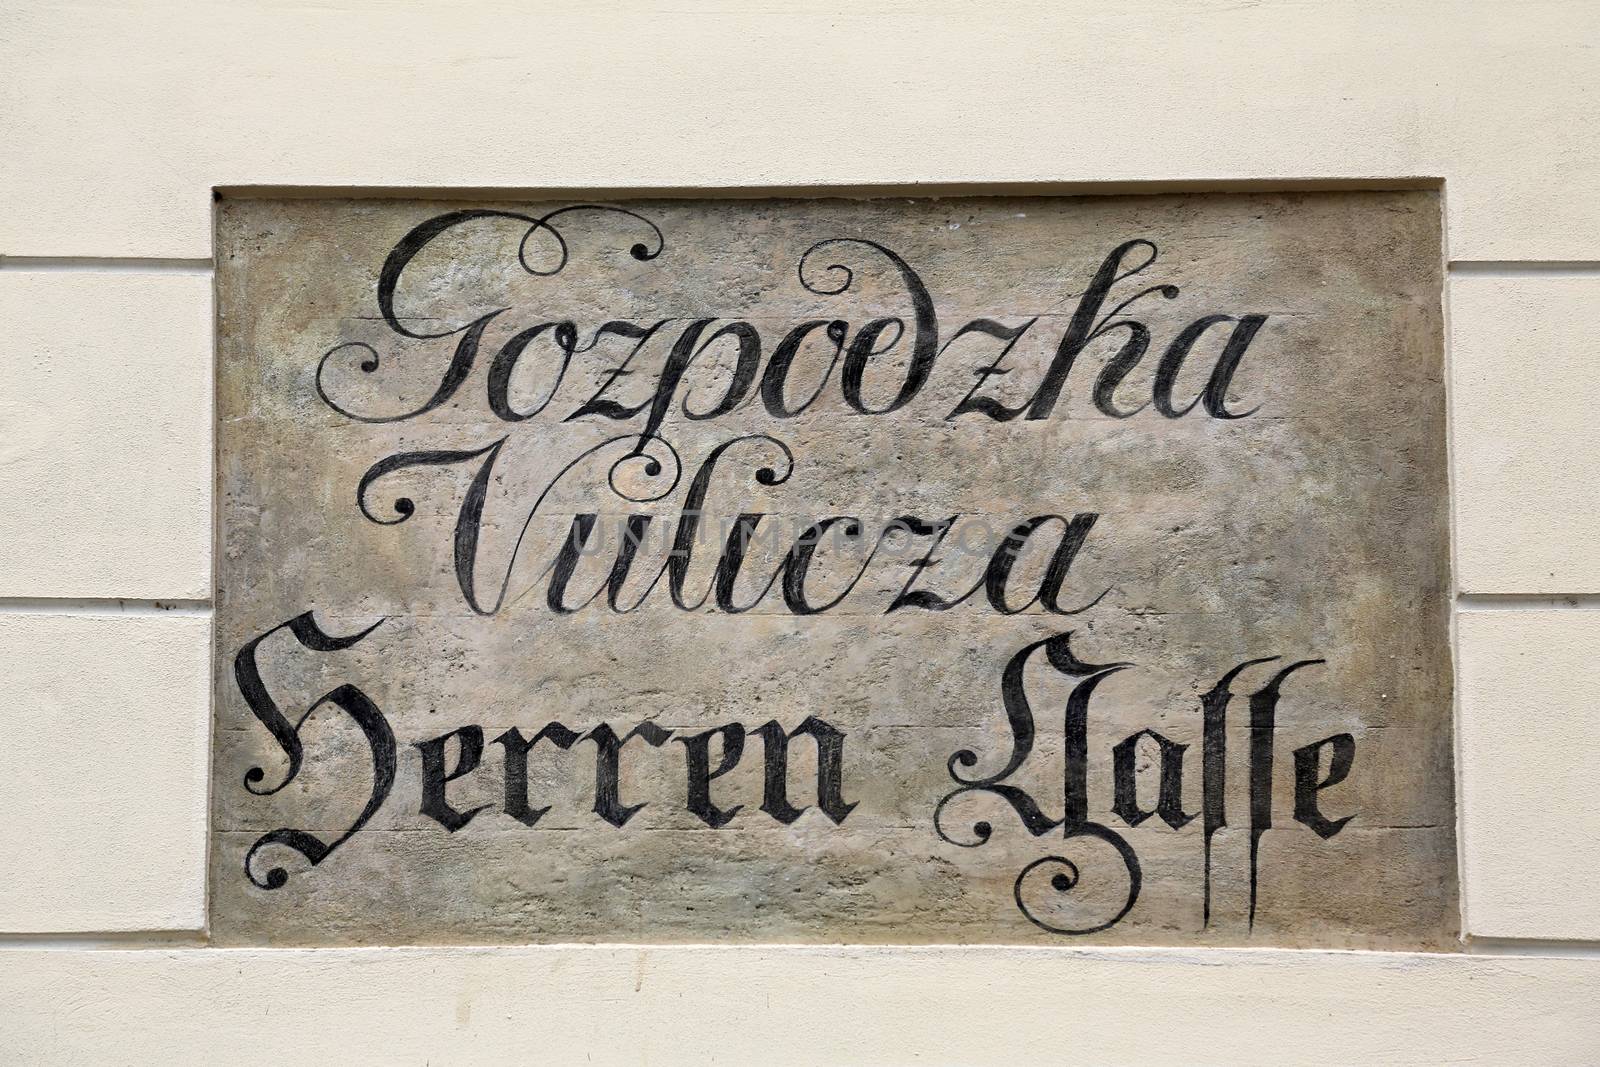 Gozpodzka
Vulicza
UNLTIMPHOTOS
Herren Gasse